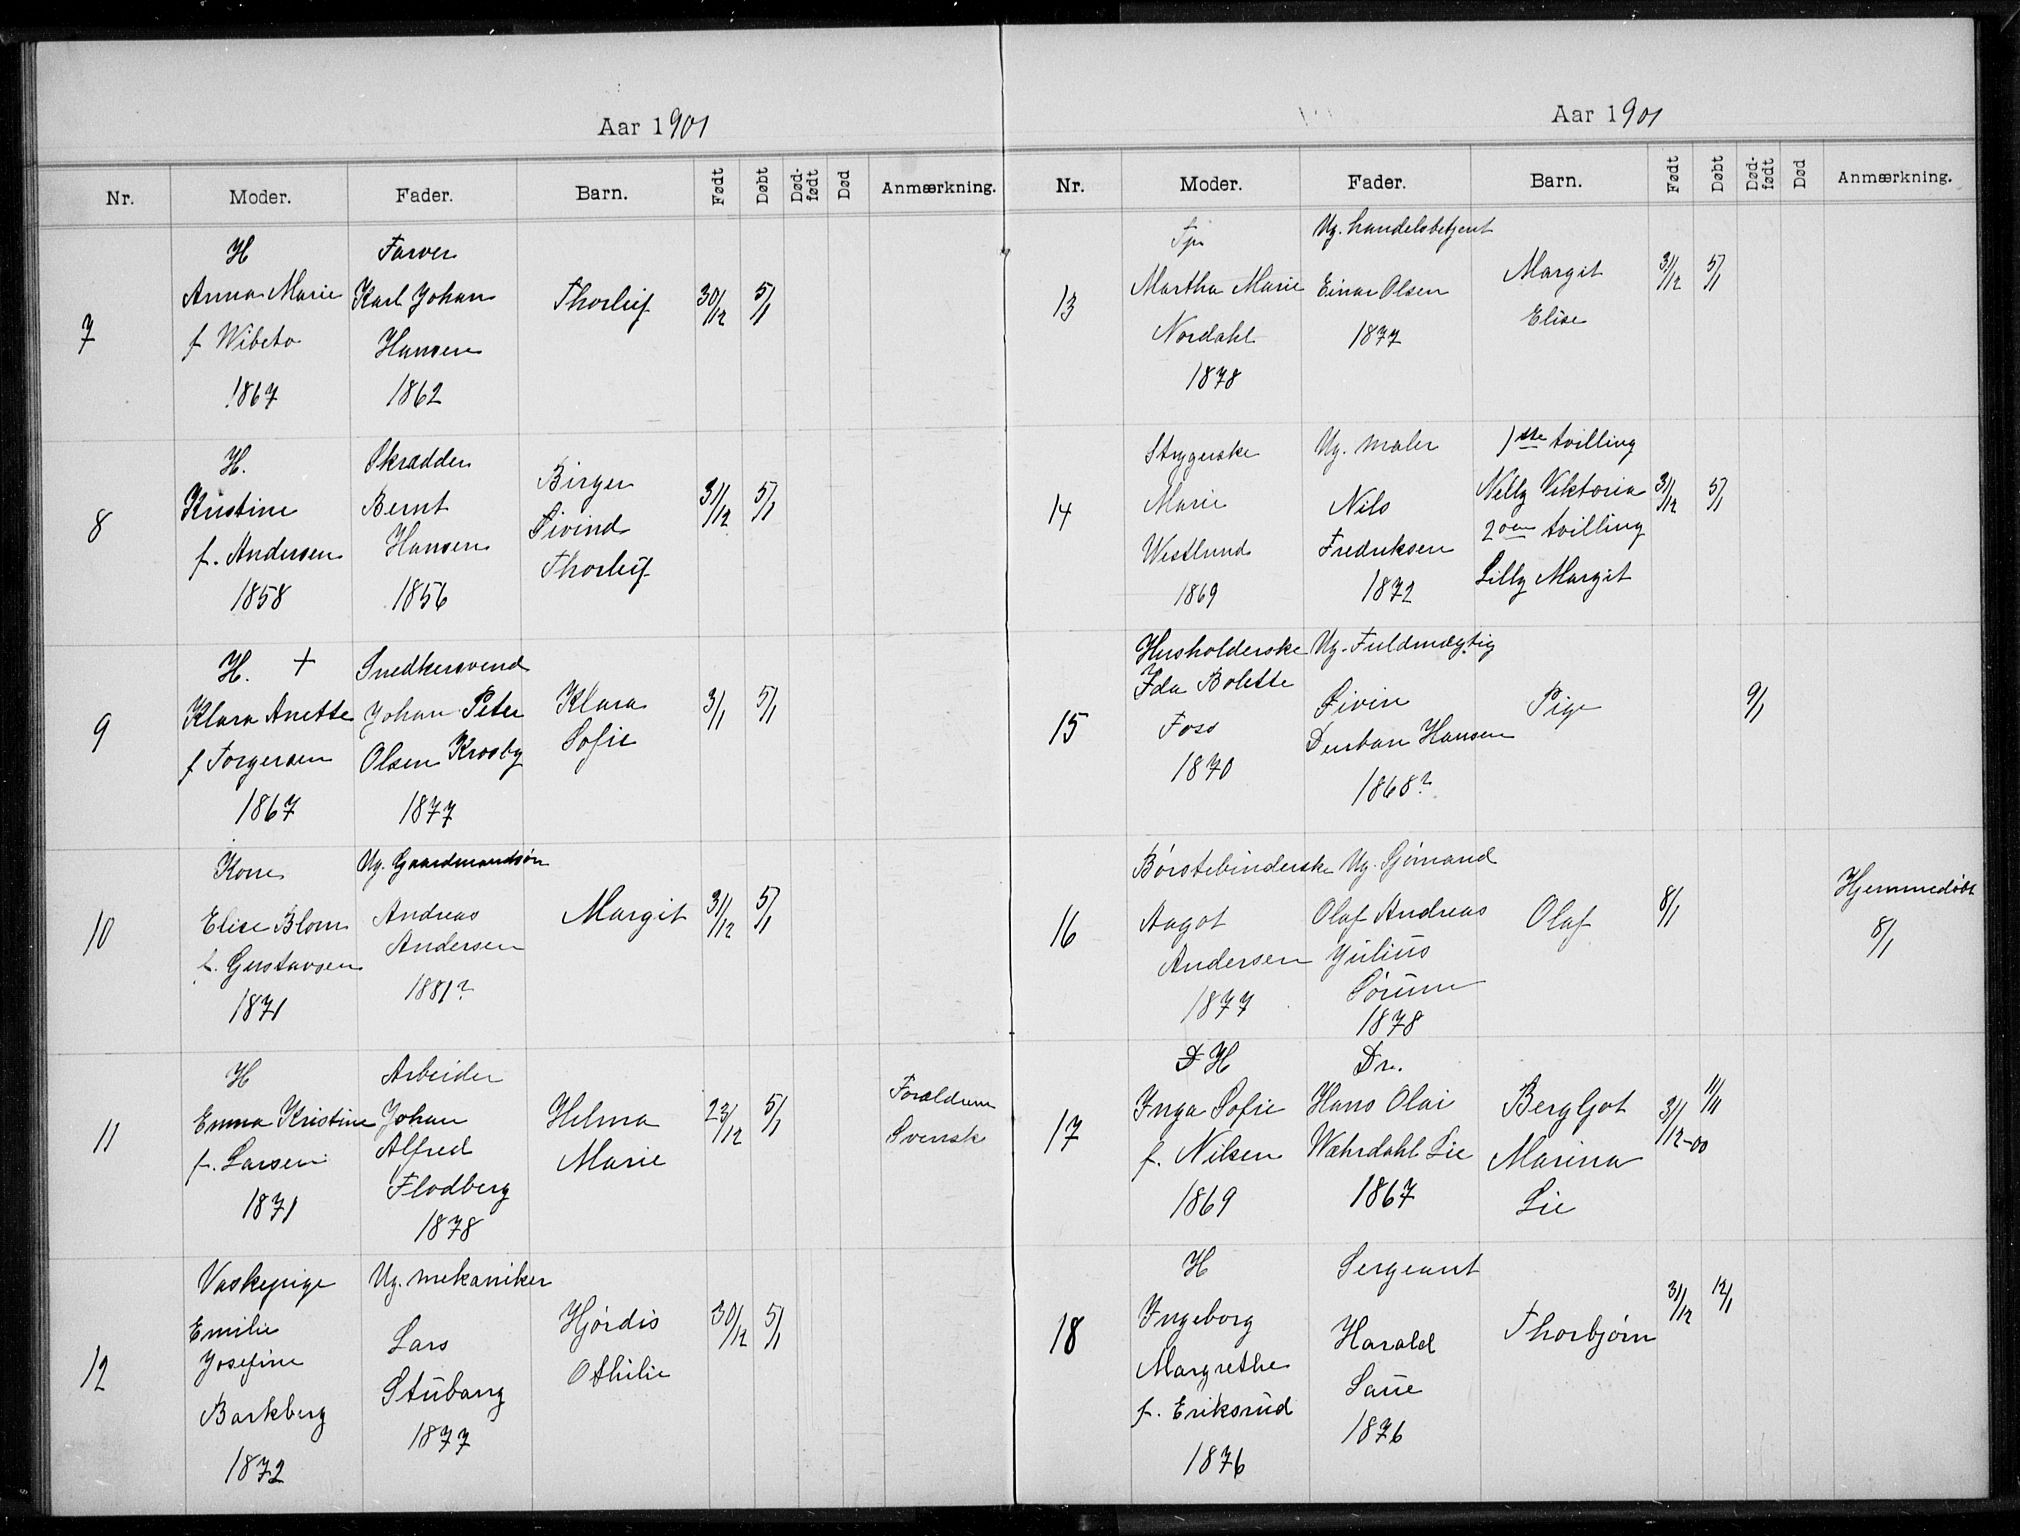 Aar 1901
Nr. Moder. Fader. Barn. Født Døbt Død-født Død Anmærkning.
7
H
Anna Marie
f Wibeto
1867
Farver
Karl Johan
Hansen
1862
Thorleif
30/12 5/1
8
H.
Kristine
f. Andersen
1858
Skrædder
Bernt
Hansen
1856
Birger
Øivind
Thorleif
31/12 5/1
9
H. +
Klara Anette
f Torgersen
1867
Snedkersvend
Johan Peter
Olsen Krosby
1877
Klara
Sofie
3/1 5/1
10
Kone
Elise Blom
f. Gustavsen
1871
Ug. Gaardmandsøn
Andreas
Andersen
1881?
Margit
31/12 5/1
11
H
Emma Kristine
f. Larsen
1871
Arbeider
Johan
Alfred
Flodberg
1878
Helma
Marie
23/12 5/1
Forældrene
Svensk
12
Vaskepige
Emilie
Josefine
Barkberg
1872
Ug. mekaniker
Lars
Stubang
1877
Hjørdis
Othilie
30/12 5/1
Aar 1901
Nr. Moder. Fader. Barn. Født Døbt Død-født Død Anmærkning.
13
Tjp
Martha Marie
Nordahl
1878
Ug. handelsbetjent
Einar Olsen
1877
Margit
Elise
31/12 5/1
14
Strygerske
Marie
Westlund
1869
Ug. maler
Nils
Fredriksen
1872
1ste tvilling
Nelly Viktoria
2den tvilling
Lilly Margit
31/12 5/1
15
Husholderske
Ida Bolette
Foss
1870
Ug. Fuldmægtig
Eivin
Durban Hansen
1868?
Pige
9/1
16
Børstebinderske
Aagot
Andersen
1877
Ug. Sjømand
Olaf Andreas
Julius
Sørum
1878
Olaf
8/1
Hjemmedøbt
8/1
17
H
Inga Sofie
f. Nilsen
1869
Dr.
Hans Olai
Wahrdahl Lie
1867
Bergljot
Marina
Lie
31/12-00 11/1
18
H
Ingeborg
Margrethe
f. Eriksrud
1876
Sergeant
Harald
Saue
1876
Thorbjørn
31/12 12/1